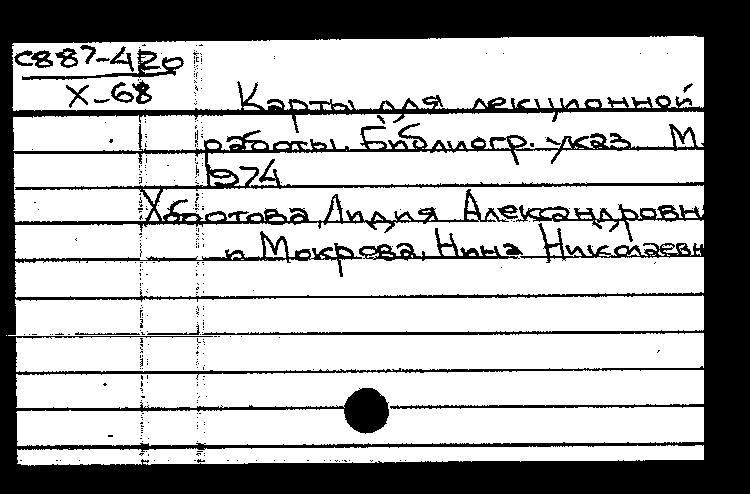 С887-420
Х-68
Карты для лекционной
работы. Библиогр. указ. М.
1974.
Хоботова, Лидия Александровн
и Мокрова, Нина Николаевн